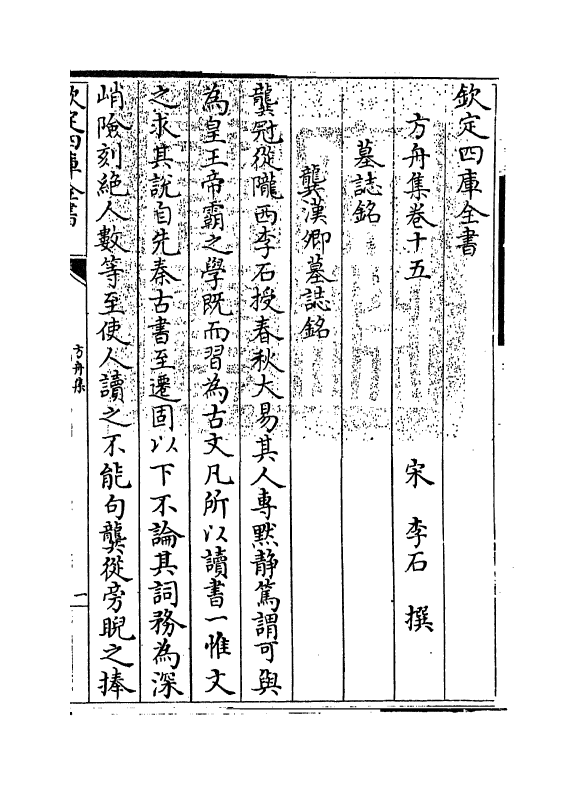 欽定四庫全書
方舟集卷十五
宋 李石 撰
墓誌銘
龔漢卿墓誌銘
龔冠從隴西李石授春秋大易其人專默靜篤謂可與
為皇王帝霸之學既而習為古文凡所以讀書一惟文
之求其說自先秦古書至遷固以下不論其詞務為深
峭險刻絕人數等至使人讀之不能句龔從旁睨之捧
欽定四庫全書
方舟集
一